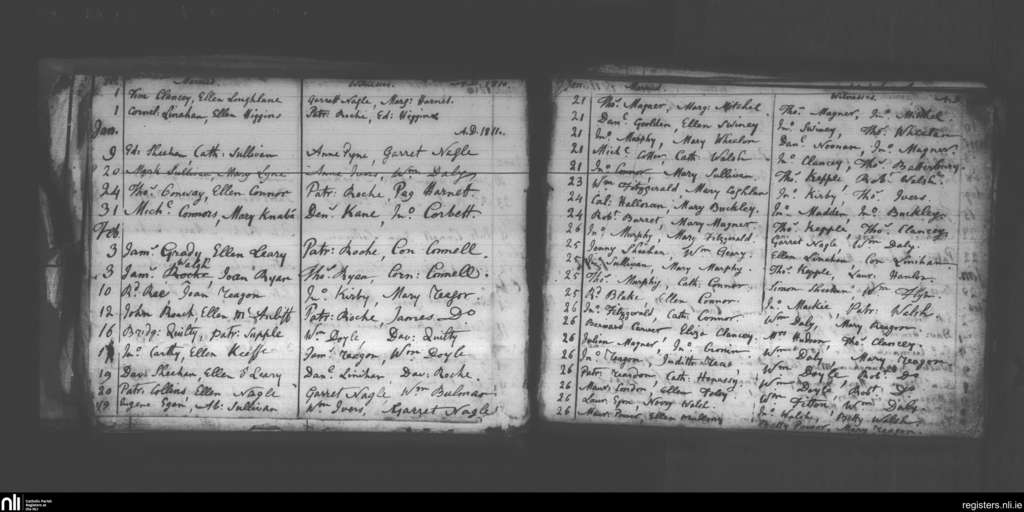 Married. Witnesses. A.D. 1810.
1 Tim Clancey, Ellen Loughlane Garrett Nagle, Marg: Harnet.
1 Cornel: Linahan, Ellen Higgins Patr: Roche, Ed: Higgins
Jan. A.D. 1811.
9 Ed: Sheehan, Cath: Sullivan Anne Fyne, Garret Nagle
20 Mark Sullivan, Mary Lyne Anne Ivers, Wm Daly
24 Thos. Conway, Ellen Connor Patr: Roche, Peg Harnett
31 Michl. Connors, Mary Knabs Den: Kane, Jno. Corbett
Feb.
3 Jam: Grady, Ellen Leary Patr: Roche, Con Connell.
Walsh
3 Jam: Roche, Joan Ryan Thos. Ryan, Corn: Connell.
10 Rd. Rae, Joan Reagon Jno. Kirby, Mary Reagon.
12 John Roach, Ellen Mc Auliff Patr: Roche, James Do
16 Bridg: Quilty, Patr: Supple Wm Doyle Dav: Quilty
Jno. Carthy, Ellen Keiffe Jam: Reagon, Wm Doyle
19 Dav: Sheehan, Ellen O'Leary Danl. Linihan Dav: Roche.
20 Patr: Collins, Ellen Nagle Garret Nagle Wm Bulman
19 Eugene Egan, Ab: Sullivan Wm Ivers, Garret Nagle
Jan. Married. Witnesses. A.D.
21 Thos. Magner, Marg: Mitchel Thos. Magner, Jno. Mitchel
21 Danl. Goolden, Ellen Swiney Jno. Swiney, Thos. Wheelan
21 Jno. Murphy, Mary Wheelon Danl. Noonan, Jno. Magner
21 Michl. Cotter, Cath: Walsh Jno. Clancey, Thos. Battersbury
21 Jno. Connor, Mary Sullivan Thos. Kepple, Rob: Walsh
23 Wm Fitzgerald, Mary Coghlan Jno. Kirby, Thos. Ivers
24 Cal: Halloran, Mary Buckley. Jno. Madden, Jno. Buckley
24 Rob: Barret, Mary Magner Thos. Kepple, Thos. Clancey
26 Jno. Murphy, Mary Fitzgerald. Garret Nagle Wm Daly.
25 Jenny Sheehan, Wm Geary. Ellen Linahan Con Linihan
25 Sullivan, Mary Murphy. Thos. Kepple, Laur: Hanlon
25 Thos. Murphy, Cath: Connor Simon Sheehan, Wm Flyn
25 Rd. Blake, Ellen Connor. Jno. Mackie, Patr: Walsh.
26 Jno. Fitzgerald, Cath: Connor. Wm Daly, Mary Reagon
26 Bernard Conver, Eliza Clancey. Mrs Hudson, Thos. Clancey.
26 Julian Magner, Jno. Cronin Wm Daly, Mary Reagon
26 Jno. Reagon, Judith Wm Doyle Rob: Do
26 Patr: Reardon, Cath: Wm Doyle, Rob: Do
26 Maur: Condon, Ellen Foley Wm Fitton, Wm Daly.
26 Laur: Egan, Nory Walsh. Jno. Walsh, Betty Walsh
26 Maur: Power, Ellen Betty Power, Mary Reagon.
nli
Catholic Parish
Registers at
the NLI
registers.nli.ie